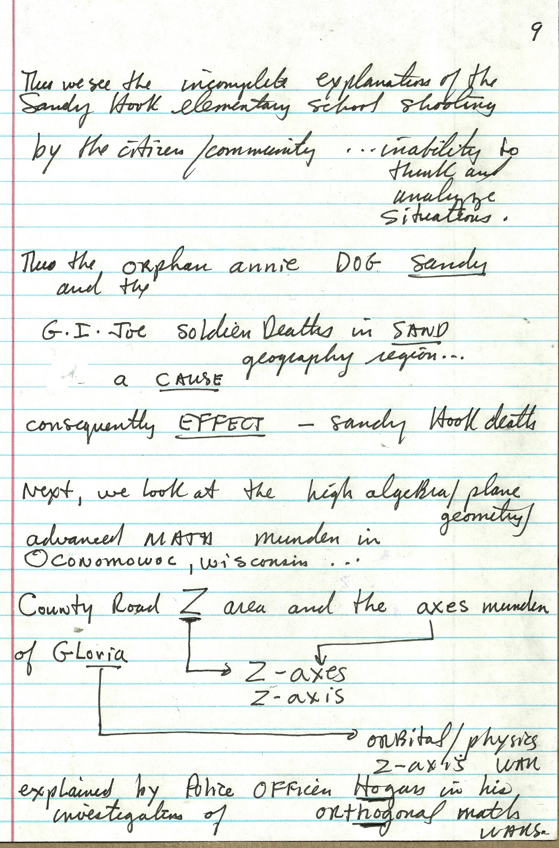 9
Thus we see the incomplete explanation of the
Sandy Hook elementary school shooting
by the citizen/community ... inability to
think and
analyze
situations.
Thus the orphan annie DOG Sandy
and the
G.I. Joe soldier Deaths in SAND
geography region...
a CAUSE
consequently EFFECT - sandy Hook death
Next, we look at the high algebra/plane
geometry/
advanced MATH murder in
Oconomowoc, Wisconsin ...
County Road Z area and the axes murder
of Gloria
Z-axes
Z-axis
orbital/physics
Z-axis WAR
explained by Police Officer Hogan in his
investigation of orthogonal math
WARS.